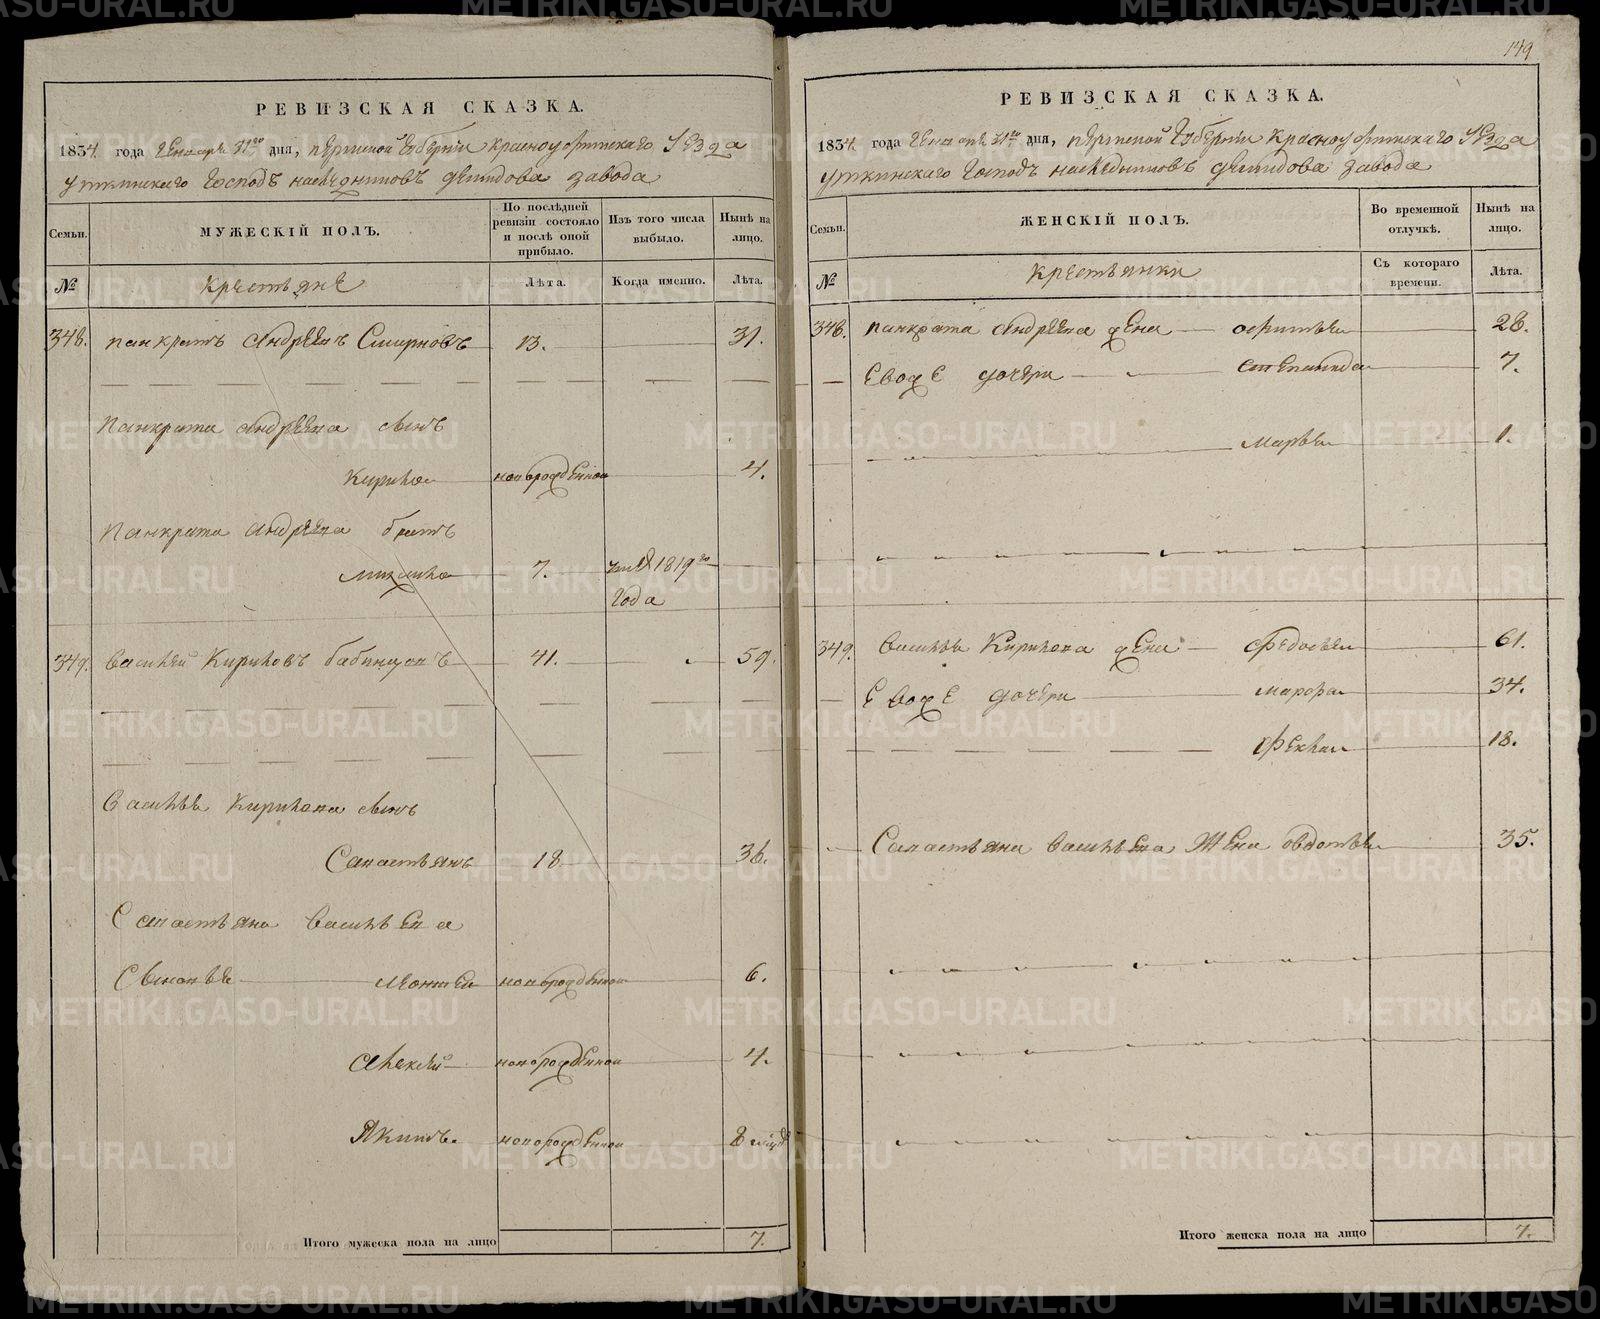 149
РЕВИЗСКАЯ СКАЗКА.
1834. года Генваря 31го дня, пермской Губернiи красноуфимскаго Уѣзда
уткинскаго Господъ наследниковъ демидова завода
Семьи.
МУЖЕСКIЙ ПОЛЪ.
По послѣдней ревизiи состояло и послѣ оной прибыло.
Изъ того числа выбыло.
Нынѣ на лицо.
№
крестьяне
Лѣта.
Когда именно.
Лѣта.
348. панкратъ Андреевъ Смирновъ 13. 31.
Панкрата Андреева сынъ
Кирила новорожденной 4.
Панкрата Андреева братъ
михаила 7. 1819го
года
349. василей Кириловъ бабинцовъ 41. 59.
василья Кирилова сынъ
Савастьянъ 18. 36.
Савастьяна васильева
Сыновья леонтей новорожденной 6.
Алексей новорожденной 4.
Якимъ новорожденной 8
Итого мужеска пола на лицо 7.
РЕВИЗСКАЯ СКАЗКА.
1834. года Генваря 31го дня, пермской Губернiи Красноуфимскаго Уѣзда
уткинскаго Господъ наследниковъ демидова завода
Семьи.
ЖЕНСКIЙ ПОЛЪ.
Во временной отлучкѣ.
Нынѣ на лицо.
№
крестьянки
Съ котораго времени.
Лѣта.
348. панкрата Андреева жена офимья 28.
Евоже дочери степанида 7.
марья 1.
349. василья Кирилова жена федосья 61.
Евоже дочери марфа 34.
Фекла 18.
Савастьяна васильева Жена овдотья 35.
Итого женска пола на лицо 7.
METRIKI.GASO-URAL.RU